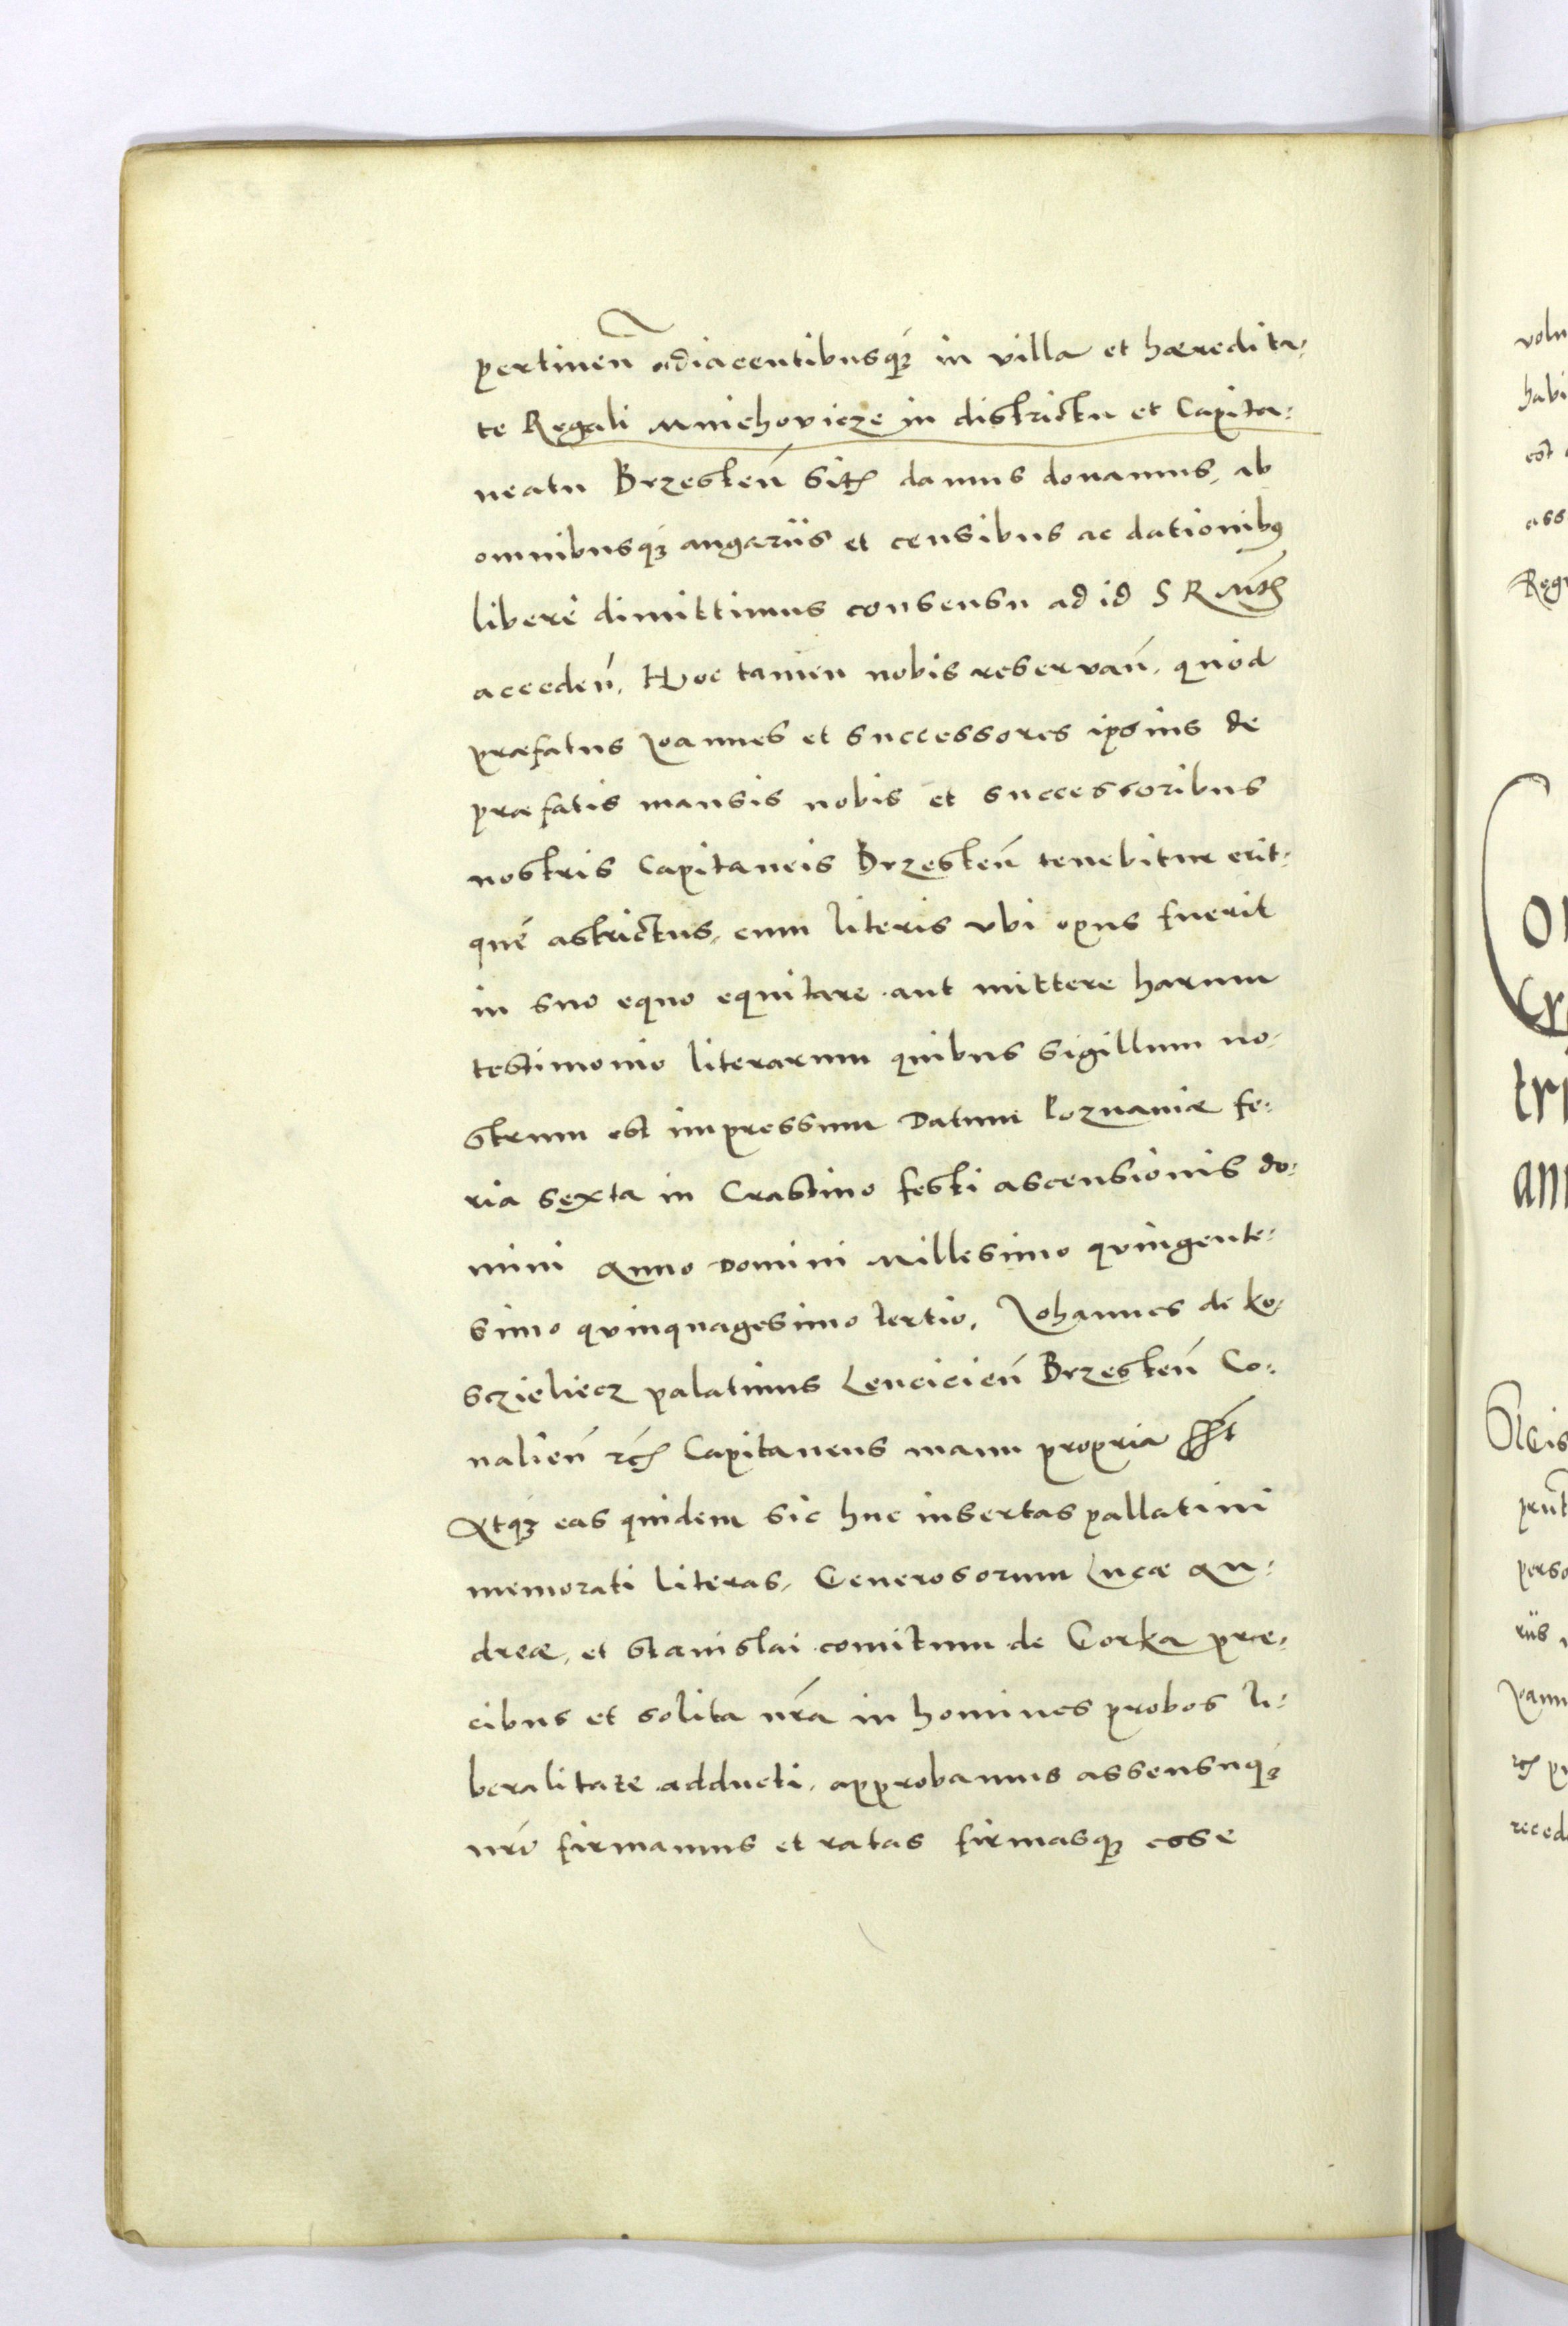 pertineñ adiacentibusq́ꝫ in villa et hæredita-
te Regali Mniehovicze in districtu et Capita-
neatu Brzesteñ sitꝭ damus donamus, ab
omnibusq́ꝫ angariis et censibus ac dationibꝰ
liberè dimittimus consensu ad id S R Mtꝭ
accedeñ. Hoc tamen nobis reservañ. quòd
præfatus Joannes et successores ipsius de
præfatis mansis nobis et successoribus
nostris Capitaneis Brzesteñ tenebitur erit-
qué astrictus, cum literis vbi opus fuerit
in suo equo equitare aut mittere harum
testimonio literarum quibus sigillum no-
strum est impressum Datum Poznaniæ fe-
ria sexta in Crastino festi ascensionis do-
mini Anno Domini Millesimo quingente-
simo quinquagesimo tertio. Johannes de Ko-
sczieliecz palatinus Lenciciеñ Brzesteñ Co-
nalieñ rc̃ Capitaneus manu propria sst
Atqꝫ eas quidem sic huc insertas pallatini
memorati literas, Generosorum Lucæ An-
dreæ, et Stanislai comitum de Gorka præ-
cibus et solita nr̃a in homines probos li-
beralitate adducti, approbamus assensuqꝫ
nr̃o firmamus et ratas firmasqꝫ esse
volu
habi
est
ass
Reg
O
Cr
tr
ann
prut
perso
riis
recede